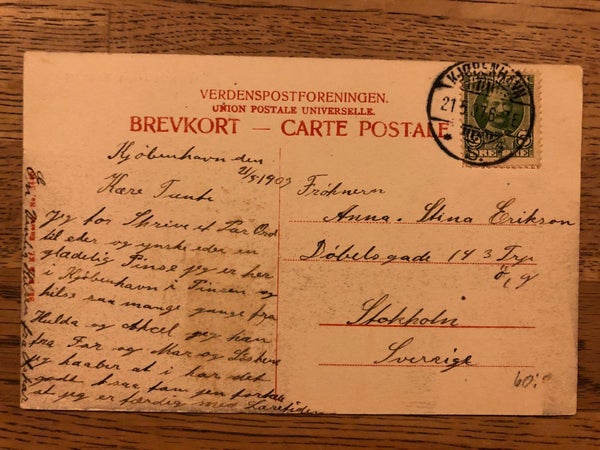 VERDENSPOSTFORENINGEN.
UNION POSTALE UNIVERSELLE.
BREVKORT — CARTE POSTALE
KJØBENHAVN
21.5
Kjøbenhavn den
21/5 1909
Kære Tante
Jeg for Skrive et Par Ord
til eder og ynske eder en
gladelig Pinse jeg er her
i Kjøbenhavn i Pinsen og
hilse saa mange gange fra
Hulda og Akcel jeg kan
fra Far og Mor og
jeg haaber at i har det
godt
at jeg er færdig med Læretiden
Frøknern
Anna-Stina Erikson
Døbelsgade 143 Trp
ö, g
Stokholn
Sverrige
60: